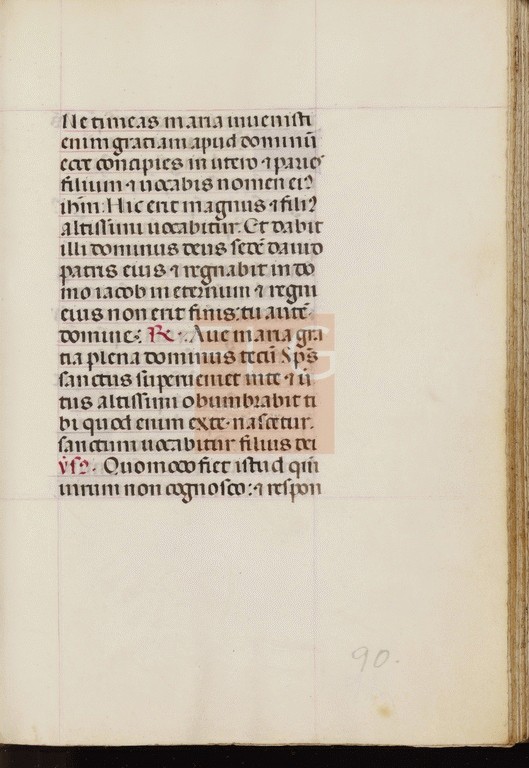 Ne timeas maria invenisti
enim gratiam apud dominū
ecce concipies in utero ⁊ paries
filium ⁊ vocabis nomen eiꝰ
ihm̄. Hic erit magnus ⁊ filiꝰ
altissimi vocabitur. Et dabit
illi dominus deus sedē david
patris eius ⁊ regnabit in do
mo iacob in eternum ⁊ regni
eius non erit finis: tu autē.
domine. R̷. Ave maria gra
tia plena dominus tecū Sp̄s
sanctus superveniet in te ⁊ v̄
tus altissimi obumbrabit ti
bi quod enim ex te nascetur.
sanctum vocabitur filius dei
v̇s. Quomodo fiet istud qm̄
virum non cognosco: ⁊ respon
90.